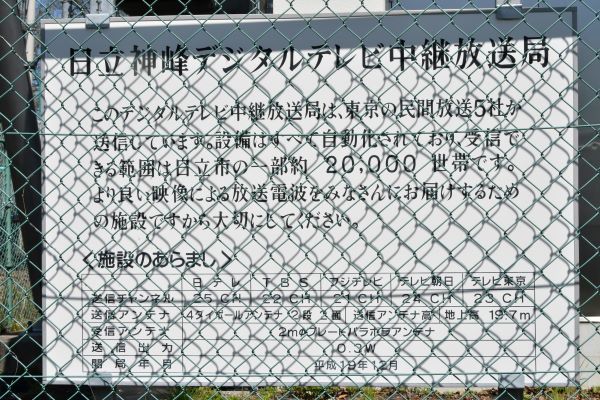 日立神峰デジタルテレビ中継放送局
このデジタルテレビ中継放送局は、東京の民間放送5社が
送信しています。設備はすべて自動化されており、受信で
きる範囲は日立市の一部約 20,000 世帯です。
より良い映像による放送電波をみなさんにお届けするため
の施設ですから大切にしてください。
<施設のあらまし>
日テレ TBS フジテレビ テレビ朝日 テレビ東京
送信チャンネル 25CH 22CH 21CH 24CH 23CH
送信アンテナ 4ダイポールアンテナ 2段 2面 送信アンテナ高 地上高 19.7m
受信アンテナ 2mφグレードパラボラアンテナ
送信出力 0.3W
開局年月 平成19年12月